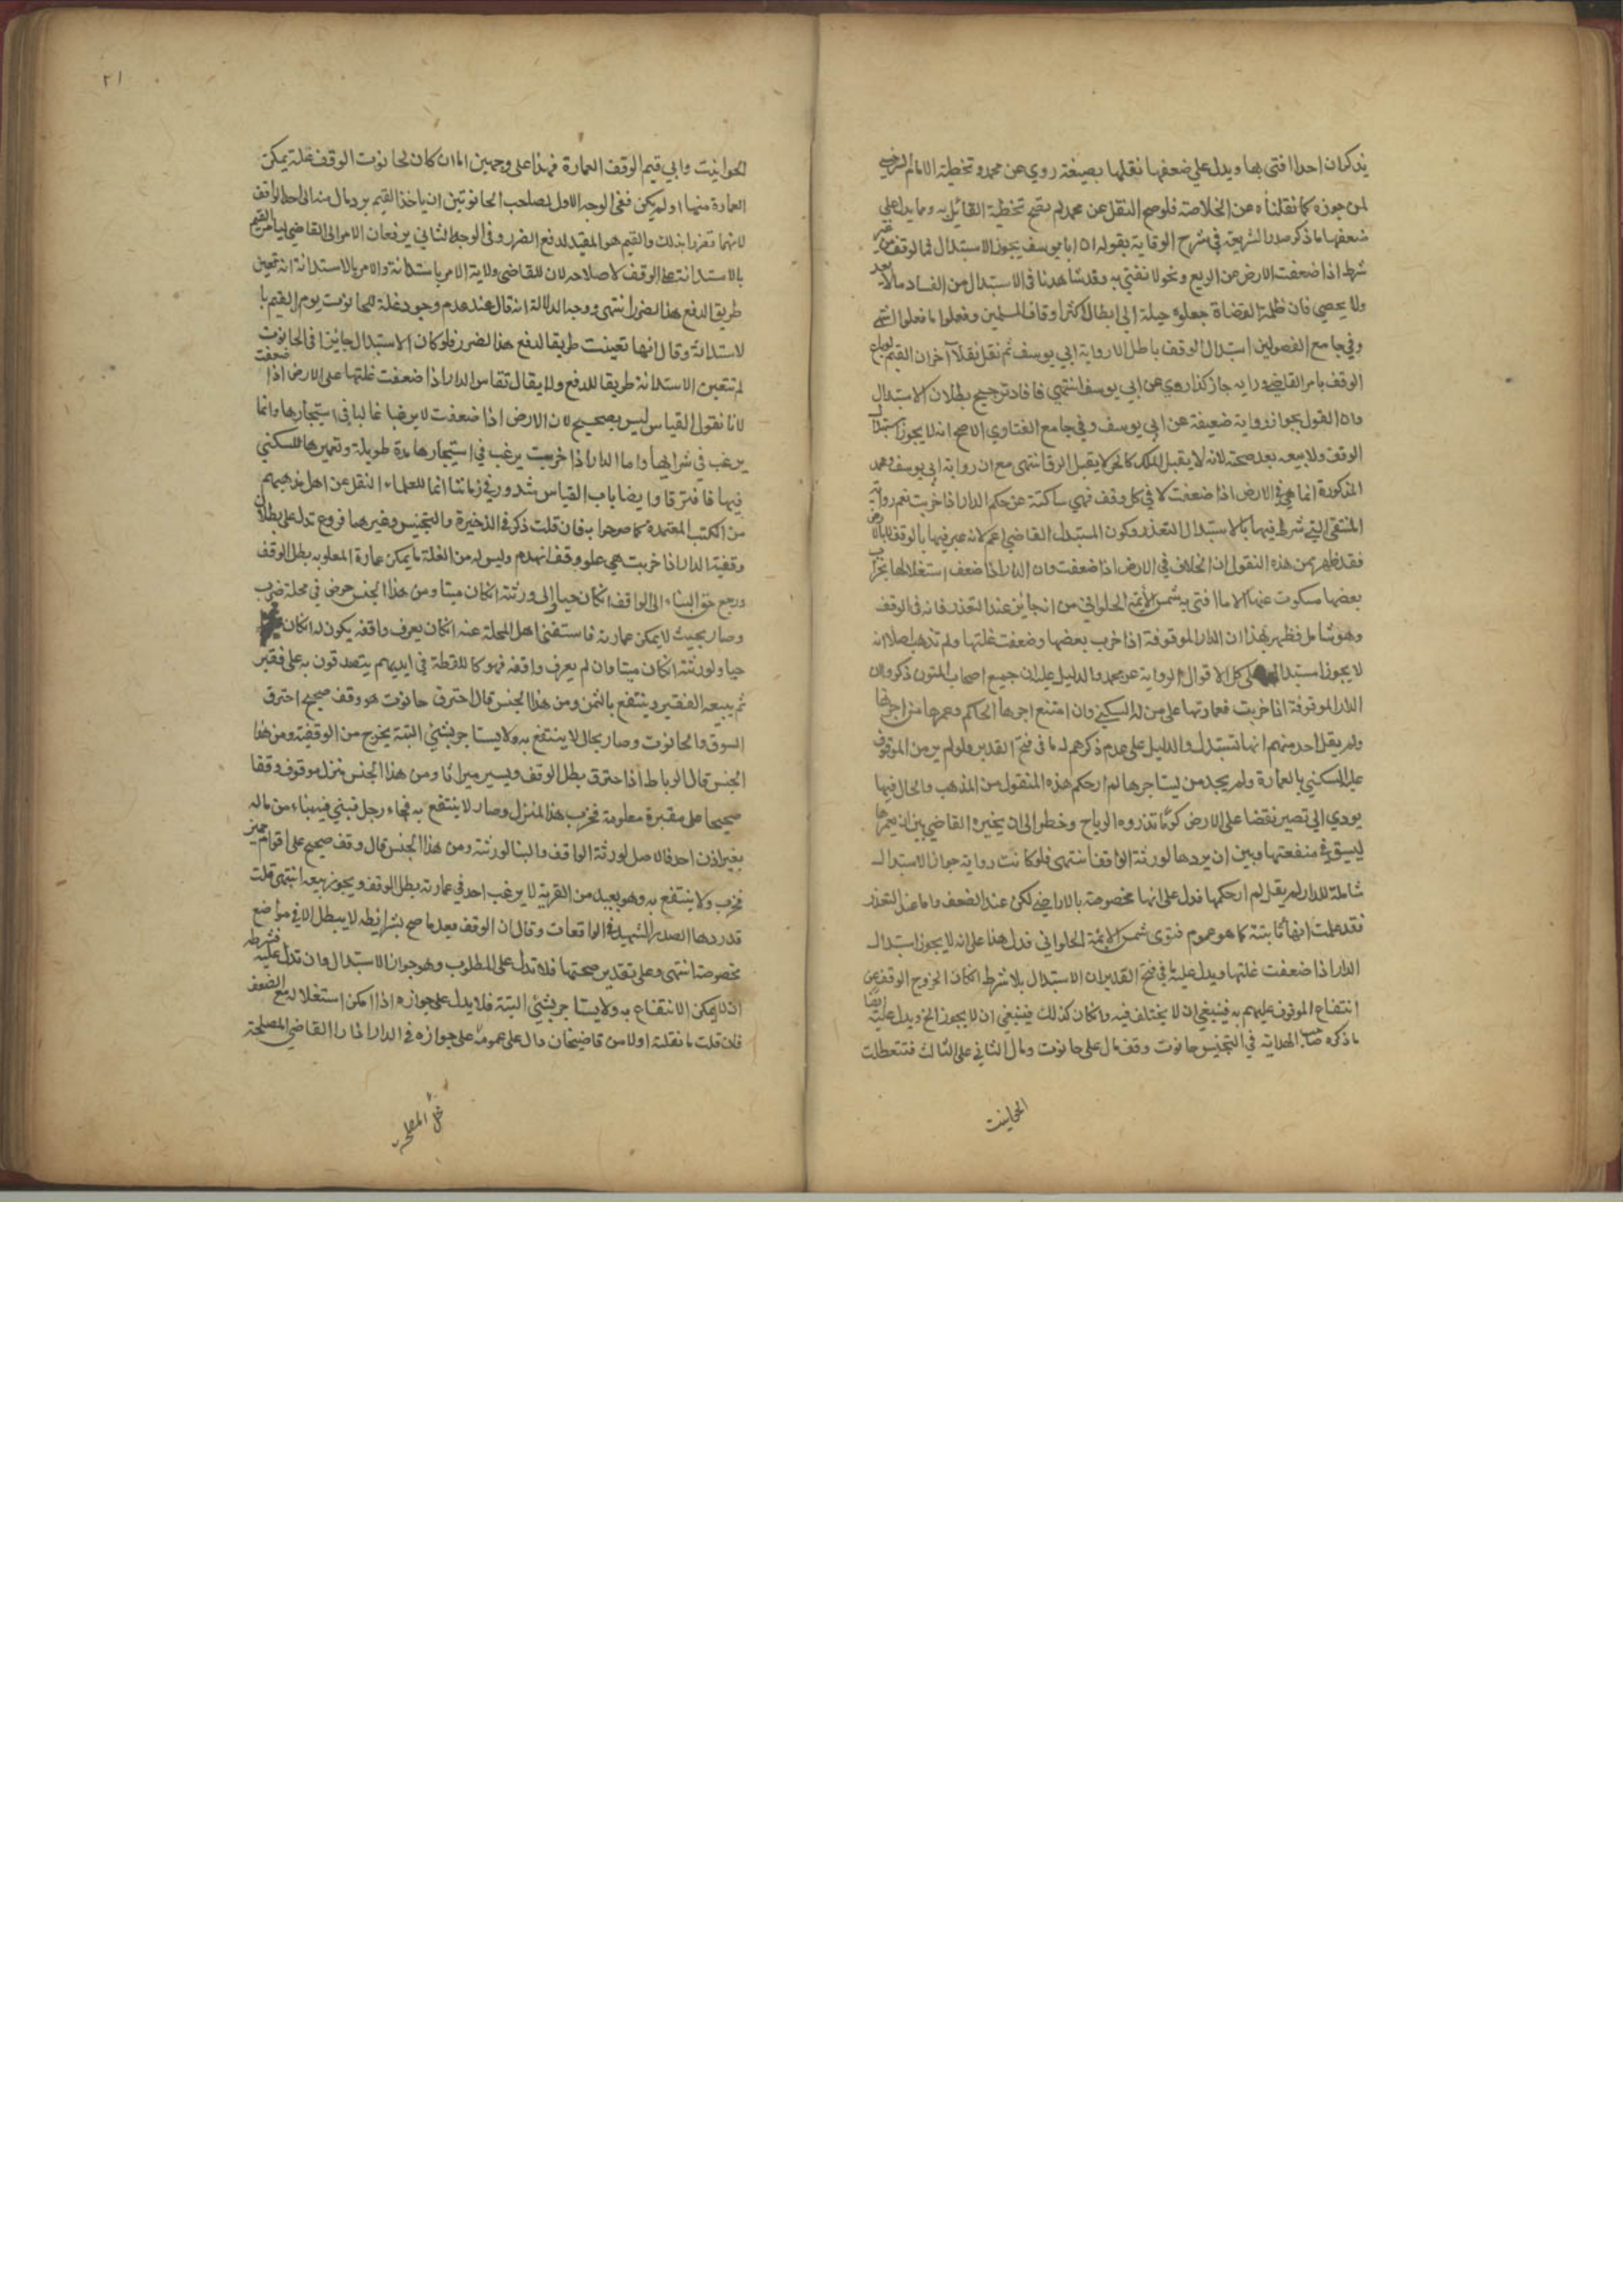 يذكر ان احدا افتى بها ويدل على ضعفها نقلها بصيغة روي عن محمد وتخطية الامام السرخسي
لمن جوزه كما نقلناه عن الخلاصة فلو صح النقل عن محمد لم يتجه تخطية القائل به ومما يدل على
ضعفها ما ذكر صدر الشريعة في شرح الوقاية بقوله ان ابا يوسف يجوز الاستبدال في الوقف من غير
شرط اذا ضعفت الارض عن الريع ونحو لا نفتي به وقد شاهدنا في الاستبدال من الفساد مالا يعد
ولا يحصي فان ظلمة القضاة جعلوه حيلة الى ابطال اكثر اوقاف المسلمين وفعلوا ما فعلوا انتهى
وفي جامع الفصولين استبدال الوقف باطل الا رواية ابي يوسف ثم نقل نقلا آخر ان القيم لو باع
الوقف بامر القاضي ورايه جاز كذا روي عن ابي يوسف انتهي فافاد ترجيح بطلان الاستبدال
وان القول بجوازه رواية ضعيفة عن ابي يوسف وفي جامع الفتاوي الاصح انه لا يجوز استبدال
الوقف ولا بيعه بعد صحته لانه لا يقبل الملك كالحر لا يقبل الرق انتهى مع ان رواية ابي يوسف ومحمد
المذكورة انما هي في الارض اذا ضعفت لا في كل وقف فهي ساكتة عن حكم الدار اذا خربت نعم رواية
المنتقى التي شرط فيها بالاستبدال التعذر وكون المستبدل القاضي اعم لانه عبر فيها بالوقف لا بالارض
فقد ظهر من هذه النقول ان الخلاف في الارض اذا ضعفت وان الدار اذا ضعف استغلالها بخراب
بعضها مسكوت عنها الا ما افتى به شمس الأيمة الحلواني من انه جائز عند التعذر فانه في الوقف
وهو شامل فظهر بهذا ان الدار الموقوفة اذا خرب بعضها وضعفت غلتها ولم تذهب اصلا انه
لا يجوز استبدالها على كل الاقوال الرواية عن محمد والدليل عليه ان جميع اصحاب المتون ذكروا ان
الدار الموقوفة اذا خربت فعمارتها على من له السكنى وان امتنع اجرها الحاكم وعمرها من اجرتها
ولم يقل احد منهم انها تستبدل والدليل على عدم ذكرهم له ما في فتح القدير ولو لم يرض الموقوف
عليه السكني بالعمارة ولم يجد من يستاجرها لم ار حكم هذه المنقول من المذهب والحال فيها
يودي الى تصير نقضا على الارض كوما تذروه الرياح وخطر الى ان يخيره القاضي بين ان يعمرها
ليستوفي منفعتها وبين ان يردها لورثة الواقف انتهى فلو كانت رواية جواز الاستبدال
شاملة للدار لم يقل لم ار حكمها فدل على انها مخصوصة بالاراضي لكن عند الضعف واما عند التعذر
فقد علمت انها ثابتة كما هو عموم فتوى شمس الايمة الحلواني فدل هذا على انه لا يجوز استبدال
الدار اذا ضعفت غلتها ويدل عليه ما في فتح القدير ان الاستبدال بلا شرط ان كان لخروج الوقف عن
انتفاع الموقوف عليهم به فينبغي ان لا يختلف فيه وان كان كذلك فينبغي ان لا يجوز الخ ويدل عليه ايضا
ما ذكره صاحب الهداية في التجنيس حانوت وقف مال على حانوت ومال الثاني على الثالث فتعطلت
الحوانيت
٢١
الحوانيت وابى قيم الوقف العمارة فهذا على وجهين اما ان كان لحانوت الوقف غلة يمكن
العمارة منها او لم يكن ففي الوجه الاول لصاحب الحانوتين ان ياخذ القيم برد مال منه الى حد الواقف
لانهما تضررا بذلك والقيم هو المقيد لدفع الضرر وفي الوجه الثاني يرفعان الامر الى القاضي ليامر القيم
بالاستدانة على الوقف لاصلاحه لان للقاضي ولاية الامر باستدانة والامر بالاستدانة انه تعين
طريق الدفع هذا الضرر انتهى ووجه الدلالة انه قال عند عدم وجود غلة للحانوت يومر القيم با
لاستدانة وقال انها تعينت طريقا لدفع هذا الضرر فلو كان الاستبدال جائزا في الحانوت
لم تتعين الاستدانة طريقا للدفع ولا يقال تقاس الدار اذا ضعفت غلتها على الارض اذا ضعفت
لانا نقول القياس ليس بصحيح لان الارض اذا ضعفت لا يرغب غالبا في استيجارها وانما
يرغب في شرايها واما الدار اذا خربت يرغب في استيجارها مدة طويلة وتعميرها للسكني
فيها فافترقا وايضا باب القياس مسدود في زماننا انما للعلماء النقل عن اهل مذهبهم
من الكتب المعتمدة كما صرحوا به فان قلت ذكر في الذخيرة والتجنيس وغيرهما فروع تدل على بطلان
وقفية الدار اذا خربت هي علو وقف انهدم وليس له من الغلة ما يمكن عمارة العلو به بطل الوقف
ورجع حق البناء الى الواقف ان كان حيا والى ورثته ان كان ميتا ومن هذا الجنس حوض في محلة خرب
وصار بحيث لا يمكن عمارته فاستغنى اهل المحلة عنه ان كان يعرف واقفه يكون له ان كان
حيا ولورثته ان كان ميتا وان لم يعرف واقفه فهو كاللقطة في ايديهم يتصدقون به على فقير
ثم يبيعه الفقير وينتفع بالثمن ومن هذا الجنس قال احترق حانوت هو وقف صحيح احترق
السوق والحانوت وصار بحال لا ينتفع به ولا يستاجر بشئي البتة يخرج من الوقفية ومن هذا
الجنس قال الرباط اذا احترق بطل الوقف ويصير ميراثا ومن هذا الجنس منزل موقوف وقفا
صحيحا على مقبرة معلومة فخرب هذا المنزل وصار لا ينتفع به فجاء رجل فبنى فيه بناء من ماله
بغير اذن احد فالاصل لورثة الواقف والبنا لورثته ومن هذا الجنس قال وقف صحيح على اقوام
فخرب ولا ينتفع به وهو بعيد من القرية لا يرغب احد في عمارته بطل الوقف ويجوز بيعه انتهى قلت
قد ردها الصدر الشهيد في الواقعات وقال ان الوقف بعد ما صح بشرايطه لا يبطل الا في مواضع
مخصوصة انتهى وعلى تقدير صحتها فلا تدل على المطلوب وهو جواز الاستبدال وان تدل عليه فشرطه
ان لا يمكن الانتفاع به ولا يستاجر بشئي البتة فلا يدل على جوازه اذا امكن استغلاله مع الضعف
فان قلت ما نقلته اولا من قاضيخان دال على عمومه على جوازه في الدار اذا راا القاضي المصلحة